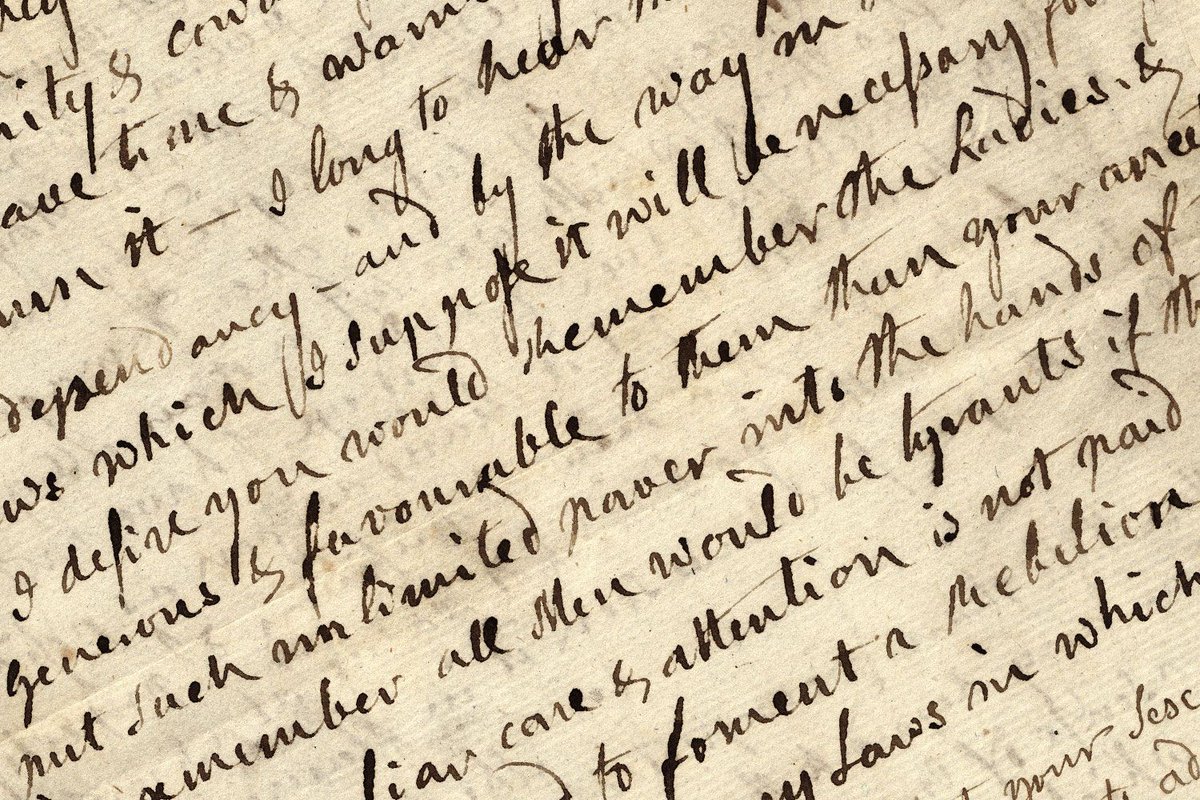 nity & cow
ave time & warm
it — I long to hear
dependancy - and by the way in
ws which I suppose it will be necessary for
I desire you would Remember the Ladies, &
generous & favourable to them than your ancest
put such unlimited power into the hands of
Remember all Men would be tyrants if th
liar care & attention is not paid
to foment a Rebelion
ny Laws in which
your Sex